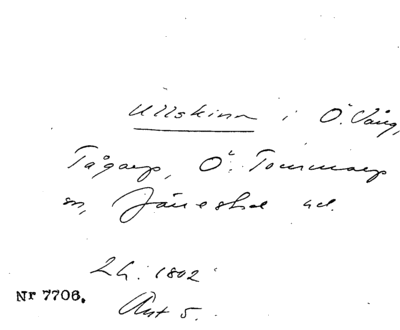 Ullskinn i Ö. Vång,
Tågarp, Ö. Tommarp
sn, Järrestad hd.
LG. 1802
Nr 7706.
Akt 5.